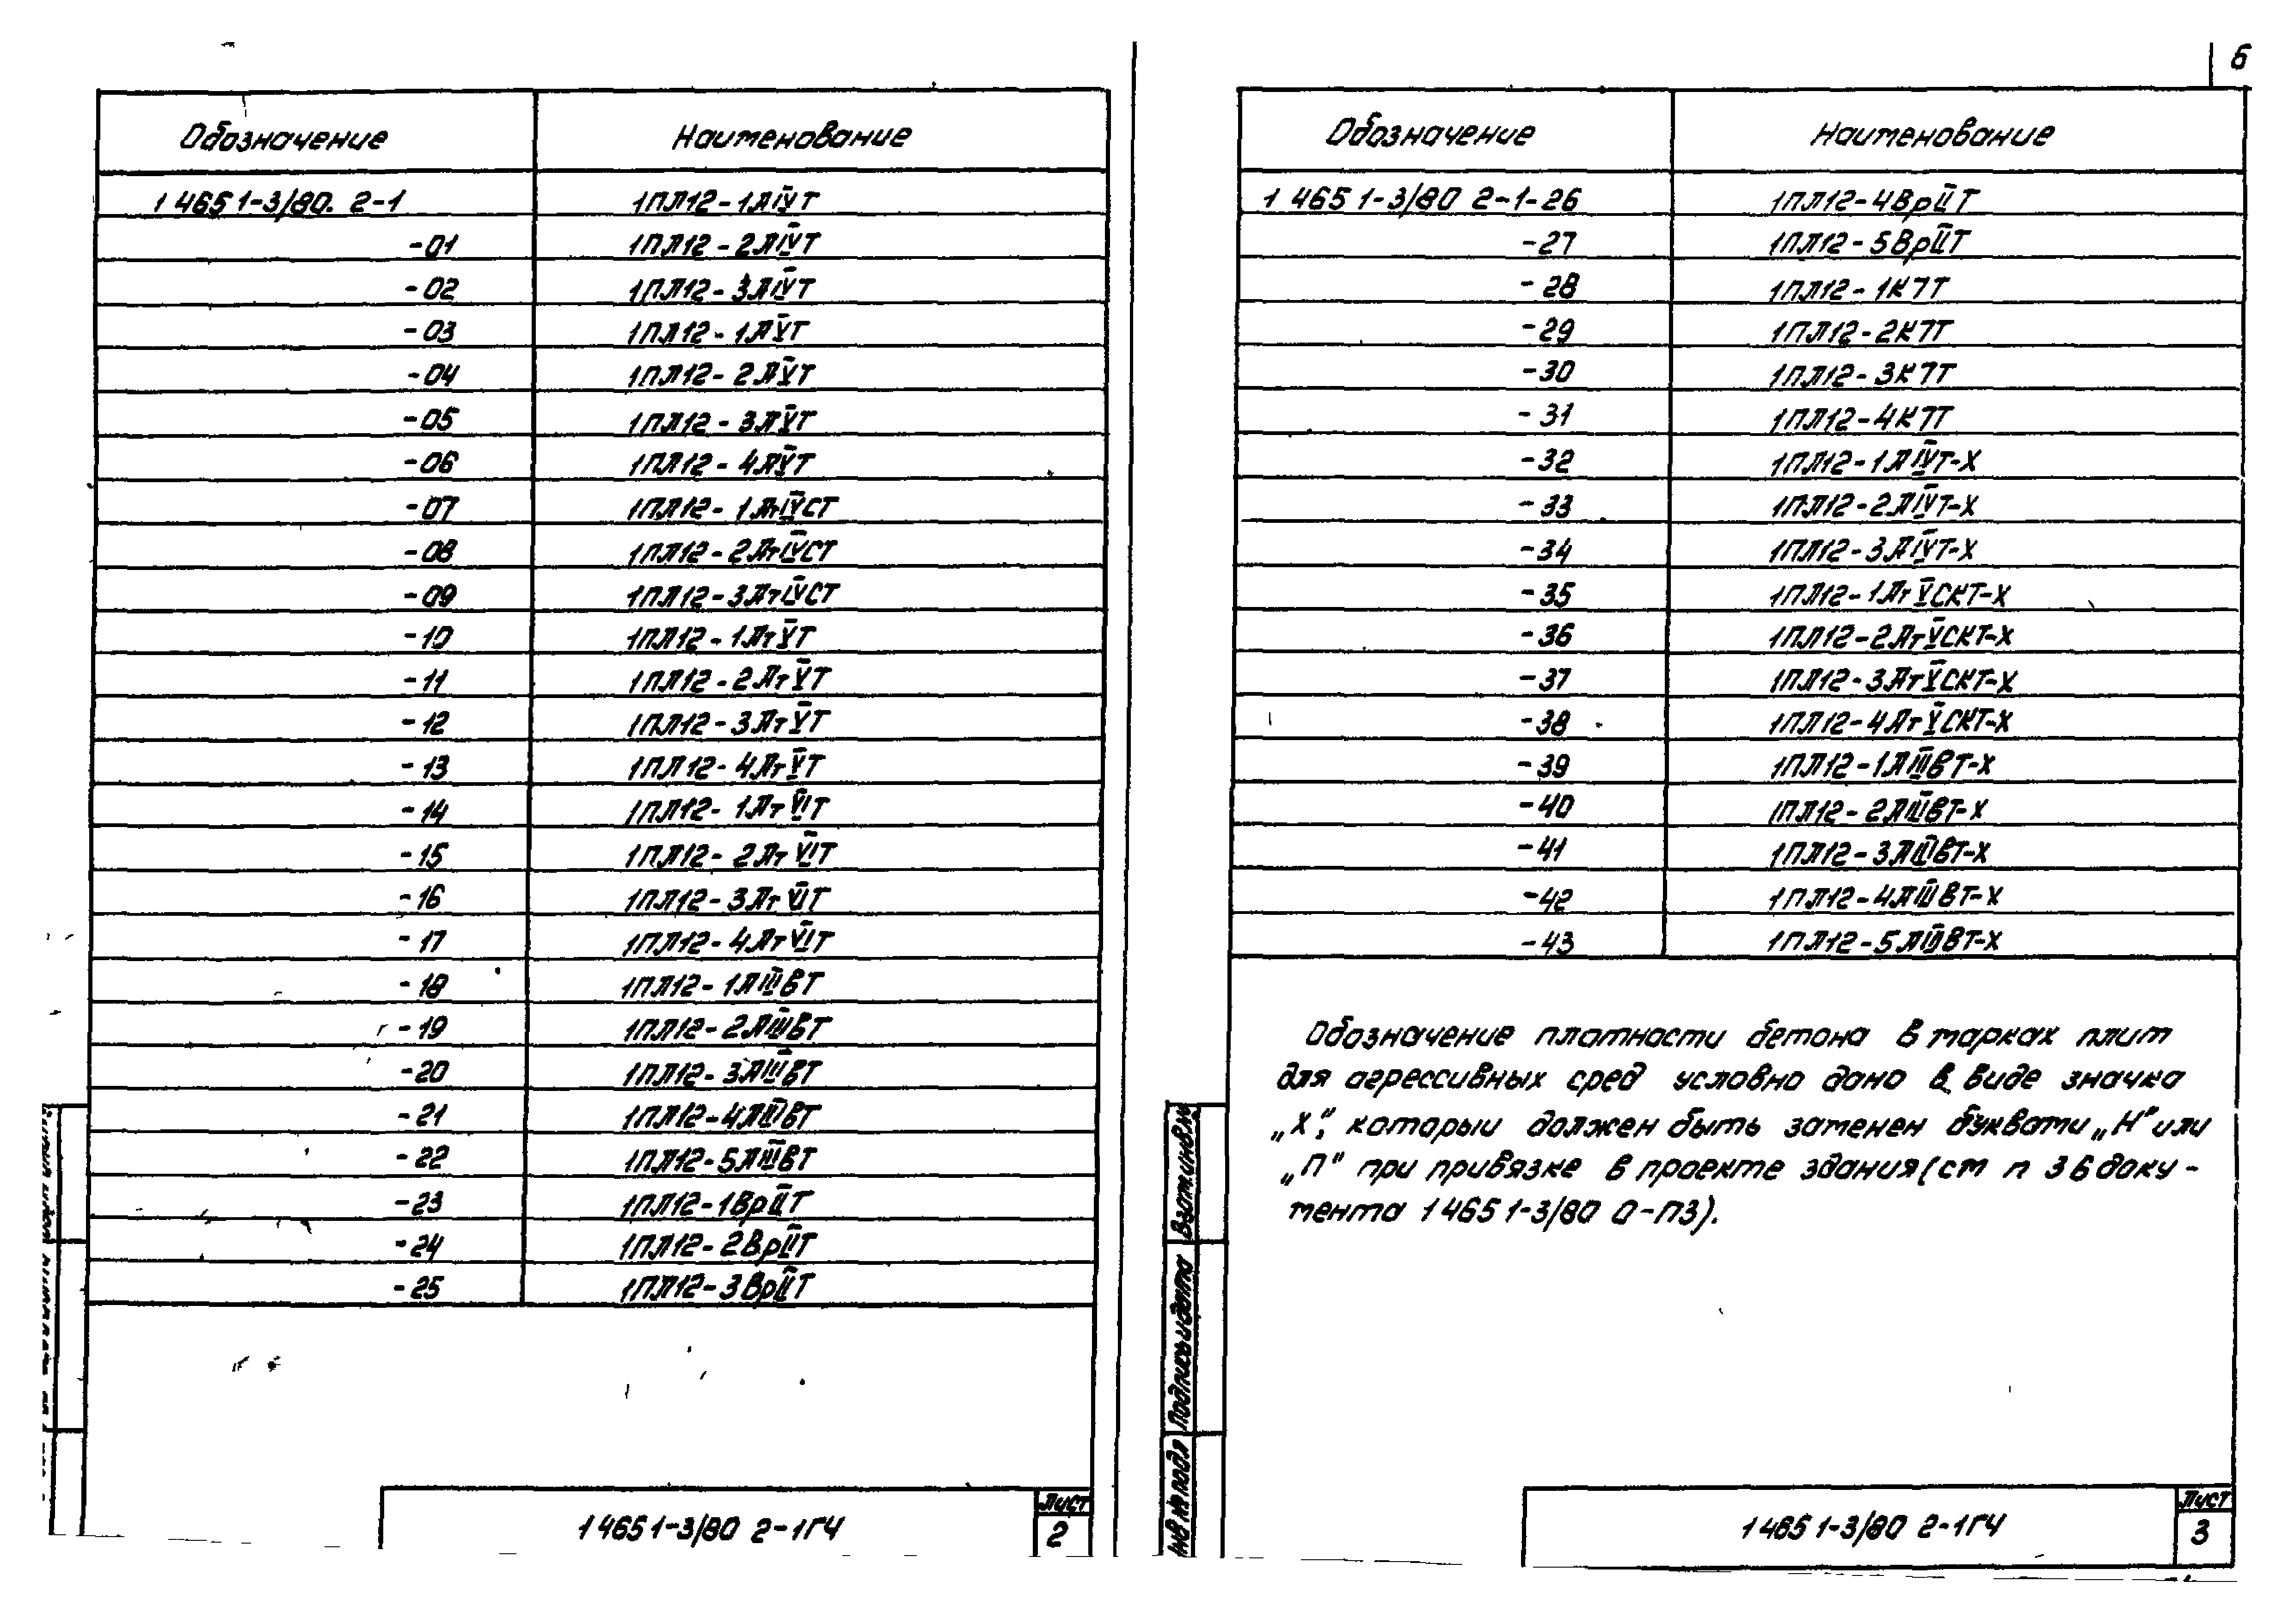 6
Обозначение Наименование
1 465 1-3/80. 2-1 1ПЛ12-1АIVТ
-01 1ПЛ12-2АIVТ
-02 1ПЛ12-3АIVТ
-03 1ПЛ12-1АVТ
-04 1ПЛ12-2АVТ
-05 1ПЛ12-3АVТ
-06 1ПЛ12-4АVТ
-07 1ПЛ12-1АтIVСТ
-08 1ПЛ12-2АтIVСТ
-09 1ПЛ12-3АтIVСТ
-10 1ПЛ12-1АтVТ
-11 1ПЛ12-2АтVТ
-12 1ПЛ12-3АтVТ
-13 1ПЛ12-4АтVТ
-14 1ПЛ12-1АтVIТ
-15 1ПЛ12-2АтVIТ
-16 1ПЛ12-3АтVIТ
-17 1ПЛ12-4АтVIТ
-18 1ПЛ12-1АIIIвТ
-19 1ПЛ12-2АIIIвТ
-20 1ПЛ12-3АIIIвТ
-21 1ПЛ12-4АIIIвТ
-22 1ПЛ12-5АIIIвТ
-23 1ПЛ12-1ВрIIТ
-24 1ПЛ12-2ВрIIТ
-25 1ПЛ12-3ВрIIТ
1 465 1-3/80 2-1ГЧ
Лист
2
Обозначение Наименование
1 465 1-3/80 2-1-26 1ПЛ12-4ВрIIТ
-27 1ПЛ12-5ВрIIТ
-28 1ПЛ12-1К7Т
-29 1ПЛ12-2К7Т
-30 1ПЛ12-3К7Т
-31 1ПЛ12-4К7Т
-32 1ПЛ12-1АIVТ-Х
-33 1ПЛ12-2АIVТ-Х
-34 1ПЛ12-3АIVТ-Х
-35 1ПЛ12-1АтVСКТ-Х
-36 1ПЛ12-2АтVСКТ-Х
-37 1ПЛ12-3АтVСКТ-Х
-38 1ПЛ12-4АтVСКТ-Х
-39 1ПЛ12-1АIIIвТ-Х
-40 1ПЛ12-2АIIIвТ-Х
-41 1ПЛ12-3АIIIвТ-Х
-42 1ПЛ12-4АIIIвТ-Х
-43 1ПЛ12-5АIIIвТ-Х
Обозначение плотности бетона в марках плит
для агрессивных сред условно дано в виде значка
„Х", который должен быть заменен буквами „Н" или
„П" при привязке в проекте здания (см п 3 6 доку-
мента 1 465 1-3/80 0-ПЗ).
Взам.инв.№
Подпись и дата
Инв № подл
1 465 1-3/80 2-1ГЧ
Лист
3